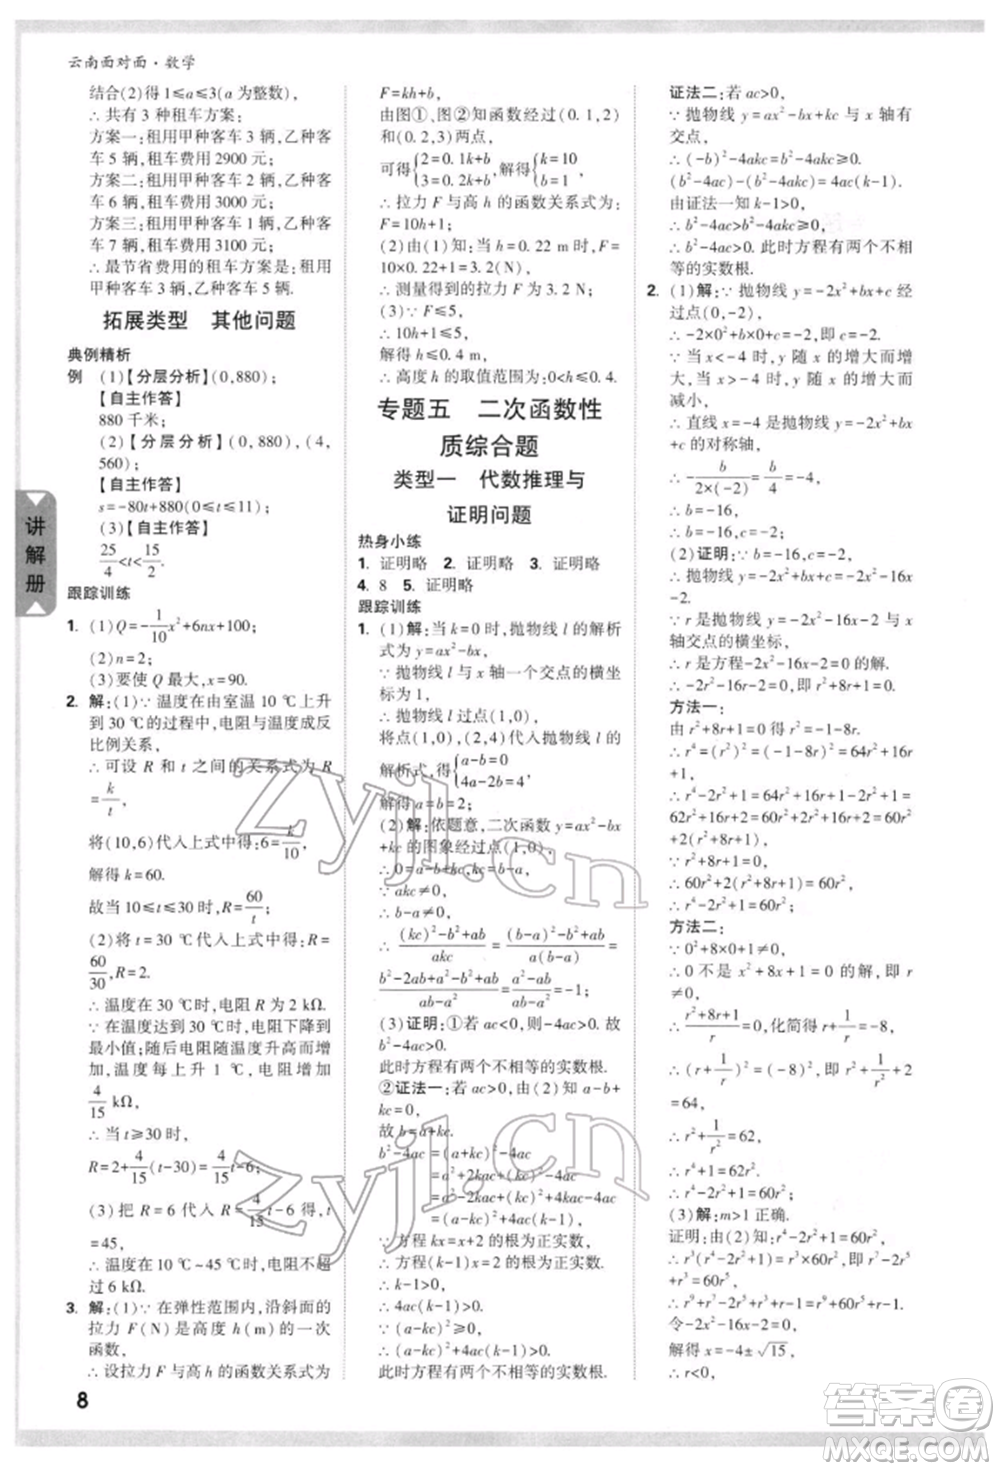 云南面对面·数学
结合(2)得 1≤a≤3(a 为整数),
∴ 共有 3 种租车方案:
方案一:租用甲种客车 3 辆,乙种客
车 5 辆,租车费用 2900 元;
方案二:租用甲种客车 2 辆,乙种客
车 6 辆,租车费用 3000 元;
方案三:租用甲种客车 1 辆,乙种客
车 7 辆,租车费用 3100 元;
∴ 最节省费用的租车方案是:租用
甲种客车 3 辆,乙种客车 5 辆.
拓展类型 其他问题
典例精析
例 (1)【分层分析】(0,880);
【自主作答】
880 千米;
(2)【分层分析】(0,880),(4,
560);
【自主作答】
s=-80t+880(0≤t≤11);
(3)【自主作答】
25/4<t<15/2.
跟踪训练
1. (1)Q=-1/10x²+6nx+100;
(2)n=2;
(3)要使 Q 最大,x=90.
2. 解:(1)∵ 温度在由室温 10 ℃上升
到 30 ℃的过程中,电阻与温度成反
比例关系,
∴ 可设 R 和 t 之间的关系式为 R
=k/t,
将(10,6)代入上式中得:6=k/10,
解得 k=60.
故当 10≤t≤30 时,R=60/t;
(2)将 t=30 ℃代入上式中得:R=
60/30=2.
∴ 温度在 30 ℃时,电阻 R=2 kΩ.
∵ 在温度达到 30 ℃时,电阻下降到
最小值;随后电阻随温度升高而增
加,温度每上升 1 ℃,电阻增加
4/15 kΩ,
∴ 当 t≥30 时,
R=2+4/15(t-30)=4/15t-6;
(3)把 R=6 代入 R=4/15t-6,得 t
=45,
∴ 温度在 10 ℃~45 ℃时,电阻不超
过 6 kΩ.
3. 解:(1)∵ 在弹性范围内,沿斜面的
拉力 F(N)是高度 h(m)的一次
函数,
∴ 设拉力 F 与高 h 的函数关系式为
F=kh+b,
由图①、图②知函数经过(0.1,2)
和(0.2,3)两点,
可得{2=0.1k+b, 3=0.2k+b,解得{k=10 b=1,
∴ 拉力 F 与高 h 的函数关系式为:
F=10h+1;
(2)由(1)知:当 h=0.22 m 时,F=
10×0.22+1=3.2(N),
∴ 测量得到的拉力 F 为 3.2 N;
(3)∵ F≤5,
∴ 10h+1≤5,
解得 h≤0.4,
∴ 高度 h 的取值范围为:0<h≤0.4.
专题五 二次函数性
质综合题
类型一 代数推理与
证明问题
热身小练
1. 证明略 2. 证明略 3. 证明略
4. 8 5. 证明略
跟踪训练
1. (1)解:当 k=0 时,抛物线 l 的解析
式为 y=ax²+bx,
∵ 抛物线 l 与 x 轴一个交点的横坐
标为 1,
∴ 抛物线过点(1,0),
将点(1,0),(2,4)代入抛物线 l 的
解析式,得{a-b=0 4a-2b=4,
解得 a=b=2;
(2)解:依题意,二次函数 y=ax²-bx
+kc 的图象经过点(1,0),
∴ 0=a-b+kc,kc=b-a,
∵ akc≠0,
∴ b-a≠0,
∴ ((kc)²-b²+ab)/akc=((b-a)²-b²+ab)/a(b-a)=
(b²-2ab+a²-b²+ab)/(ab-a²)=-1;
(3)证明:①若 ac<0,则-4ac>0. 故
b²-4ac>0.
此时方程有两个不相等的实数根.
②证法一:若 ac>0,由(2)知 a-b+
kc=0,
故 b=a+kc.
b²-4ac=(a+kc)²-4ac
=a²+2akc+(kc)²-4ac
=a²-2akc+(kc)²+4akc-4ac
=(a-kc)²+4ac(k-1).
∵ 方程 kx=x+2 的根为正实数,
∴ 方程(k-1)x=2 的根为正实数.
∴ k-1>0,
∴ 4ac(k-1)>0.
∵ (a-kc)²≥0,
∴ (a-kc)²+4ac(k-1)>0.
此时方程有两个不相等的实数根.
证法二:若 ac>0,
∵ 抛物线 y=ax²-bx+kc 与 x 轴有
交点,
∴ (-b)²-4akc=b²-4akc≥0.
(b²-4ac)-(b²-4akc)=4ac(k-1).
由证法一知 k-1>0,
∴ b²-4ac>b²-4akc≥0.
∴ b²-4ac>0. 此时方程有两个不相
等的实数根.
2. (1)解:∵ 抛物线 y=-2x²+bx+c 经
过点(0,-2),
∴ -2×0²+b×0+c=-2,即 c=-2,
∵ 当 x<-4 时,y 随 x 的增大而增
大,当 x>-4 时,y 随 x 的增大而
减小,
∴ 直线 x=-4 是抛物线 y=-2x²+bx
+c 的对称轴,
∴ -b/(2×(-2))=b/4=-4,
∴ b=-16,
∴ b=-16,c=-2;
(2)证明:∵ b=-16,c=-2,
∴ 抛物线的解析式为 y=-2x²-16x
-2.
∵ r 是抛物线 y=-2x²-16x-2 与 x
轴交点的横坐标,
∴ r 是方程-2x²-16x-2=0 的解.
∴ -2r²-16r-2=0,即 r²+8r+1=0.
方法一:
由 r²+8r+1=0 得 r²=-1-8r.
∴ r⁴=(r²)²=(-1-8r)²=64r²+16r
+1,
∴ r⁴-2r²+1=64r²+16r+1-2r²+1=
62r²+16r+2=62r²-2r²+2r²+16r+2
=60r²+2(r²+8r+1),
∵ r²+8r+1=0,
∴ 60r²+2(r²+8r+1)=60r²,
∴ r⁴-2r²+1=60r²;
方法二:
∵ 0²+8×0+1≠0,
∴ 0 不是 x²+8x+1=0 的解,即 r
≠0.
∴ (r²+8r+1)/r=0,化简得 r+1/r=-8,
∴ (r+1/r)²=(-8)²,即 r²+1/r²+2
=64,
∴ r²+1/r²=62,
∴ r⁴+1=62r²,
∴ r⁴-2r²+1=60r²;
(3)解:m>1 正确.
证明:由(2)知:r⁴-2r²+1=60r²,
∴ r⁵(r⁴-2r²+1)=60r⁷,即 r⁹-2r⁷+r⁵
=60r⁷,
∴ r⁹-2r⁷+r⁵-60r⁷=0.
令-2x²-16x-2=0,
解得 x=-4±√15,
∴ r<0,r⁵<0,r⁷<0.
讲解册
8
zyjl.cn
zyjl.cn
答案圈
MXQE.COM